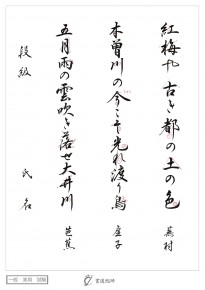 紅梅や古き都の土の色 蕪村
木曽川の今こそ光れ渡り鳥 虚子
五月雨の雲吹き落せ大井川 芭蕉
段級 氏名